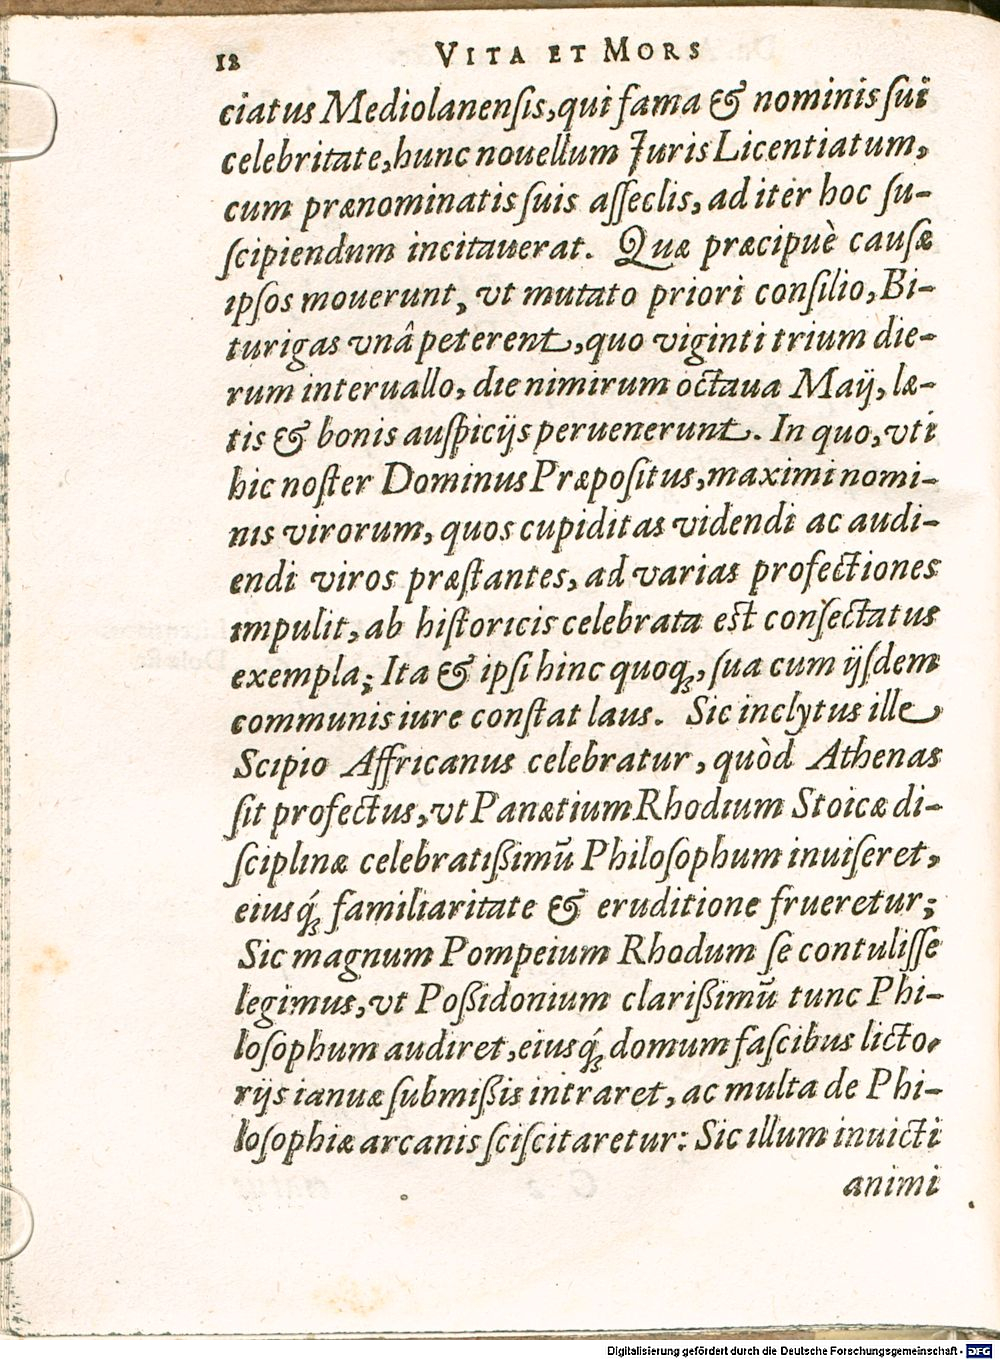 12 VITA ET MORS
ciatus Mediolanenſis, qui fama & nominis ſui
celebritate, hunc nouellum Juris Licentiatum,
cum prænominatis ſuis aſſeclis, ad iter hoc ſu-
ſcipiendum incitauerat. Quæ præcipuè cauſæ
ipſos mouerunt, vt mutato priori conſilio, Bi-
turigas vnâ peterent, quo viginti trium die-
rum interuallo, die nimirum octaua Maij, læ-
tis & bonis auſpicijs peruenerunt. In quo, vti
hic noſter Dominus Præpoſitus, maximi nomi-
nis virorum, quos cupiditas videndi ac audi-
endi viros præſtantes, ad varias profectiones
impulit, ab hiſtoricis celebrata est conſectatus
exempla; Ita & ipſi hinc quoq;, ſua cum ijſdem
communis iure conſtat laus. Sic inclytus ille
Scipio Affricanus celebratur, quòd Athenas
ſit profectus, vt Panætium Rhodium Stoicæ di-
ſciplinæ celebratißimũ Philoſophum inuiſeret,
eiusq́; familiaritate & eruditione frueretur;
Sic magnum Pompeium Rhodum ſe contuliſſe
legimus, vt Poßidonium clarißimũ tunc Phi-
loſophum audiret, eiusq́; domum faſcibus licto-
rijs ianuæ ſubmißis intraret, ac multa de Phi-
loſophiæ arcanis ſciſcitaretur: Sic illum inuicti
animi
Digitalisierung gefördert durch die Deutsche Forschungsgemeinschaft - DFG